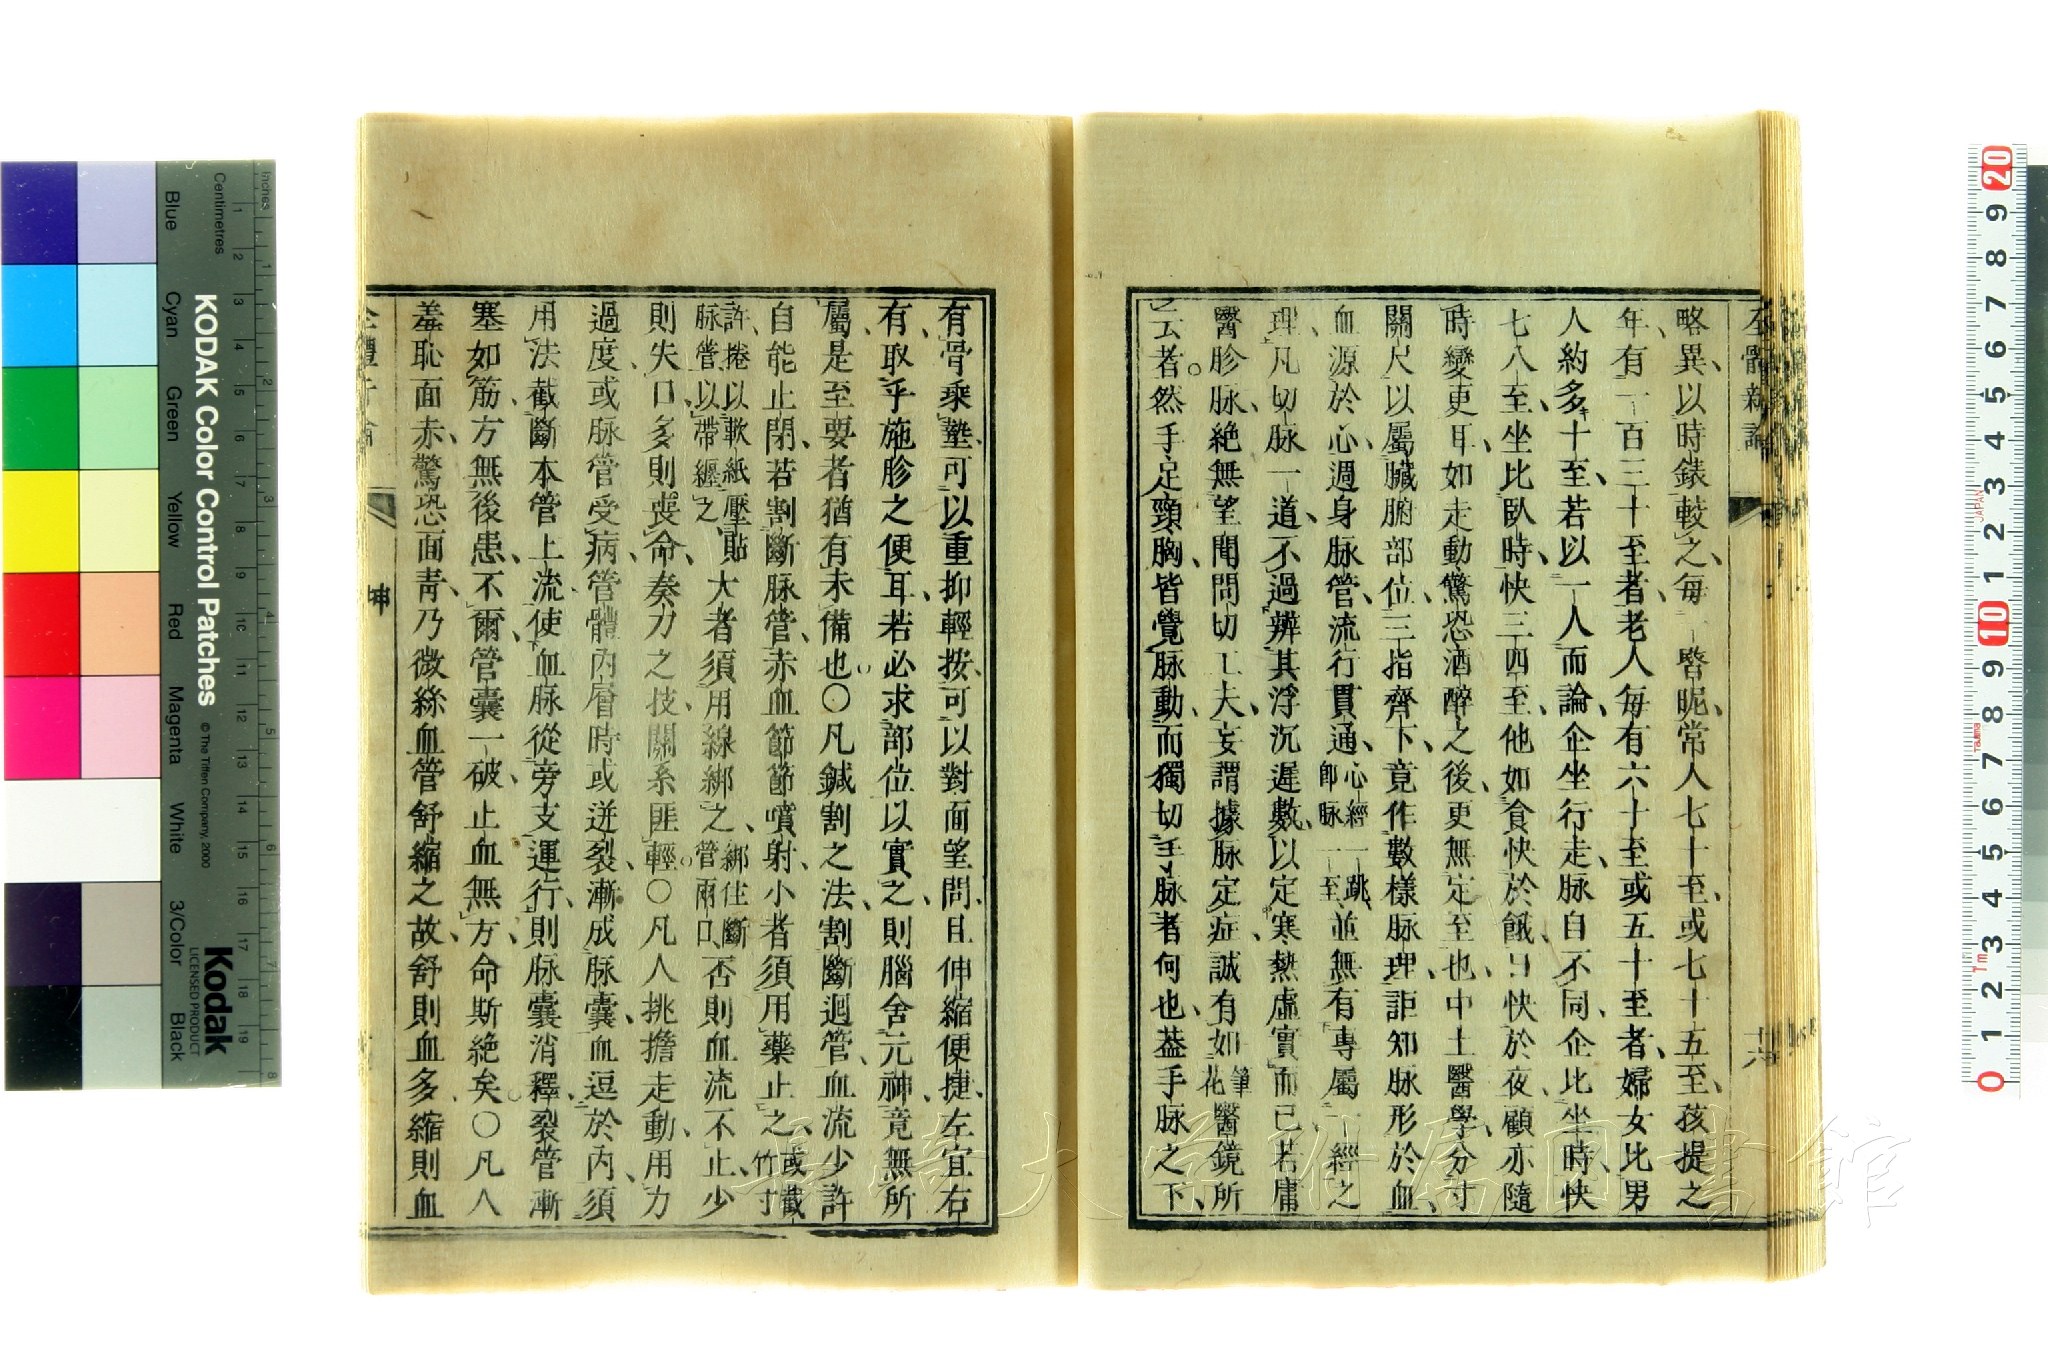 略異、以時錶較之、每一晷眤、常人七十至、或七十五至、孩提之
年、有一百三十至者、老人每有六十至或五十至者、婦女比男
人約多十至、若以一人而論、企坐行走、脉自不同、企比坐時、快
七八至、坐比臥時、快三四至、他如食快於餓、日快於夜、顧亦隨
時變更耳、如走動驚恐酒醉之後、更無定至也、中土醫學、分寸
關尺以屬臟腑部位、三指齊下、竟作數樣脉理、詎知脉形於血、
血源於心、週身脉管、流行貫通、心經一跳、即脉一至、並無有專屬一經之
理、凡切脉一道、不過辨其浮沉遲數、以定寒熱虛實而已、若庸
醫胗脉、絶無望聞問切工夫、妄謂據脉定症、誠有如筆花醫鏡所
云者。然手足頸胸、皆覺脉動、而獨切手脉者何也、葢手脉之下、
有骨乘墊、可以重抑輕按、可以對面望問、且伸縮便捷、左宜右
有、取乎施胗之便耳、若必求部位以實之、則腦舍元神、竟無所
屬、是至要者猶有未備也、〇凡鍼割之法、割斷迴管、血流少許
自能止閉、若割斷脉管、赤血節節噴射、小者須用藥止之、或截竹寸
許、捲以軟紙壓貼脉管、以帶纒之大者須用線綁之、綁住斷管兩口、否則血流不止、少
則失口、多則喪命、奏刀之技、關系匪輕。〇凡人挑擔走動、用力
過度、或脉管受病、管體內層時或迸裂、漸成脉囊、血逗於內、須
用法截斷本管上流、使血脉從旁支運行、則脉囊消釋、裂管漸
塞如筋、方無後患、不爾、管囊一破、止血無方、命斯絶矣。〇凡人
羞恥面赤、驚恐面靑、乃微絲血管舒縮之故、舒則血多、縮則血
坤